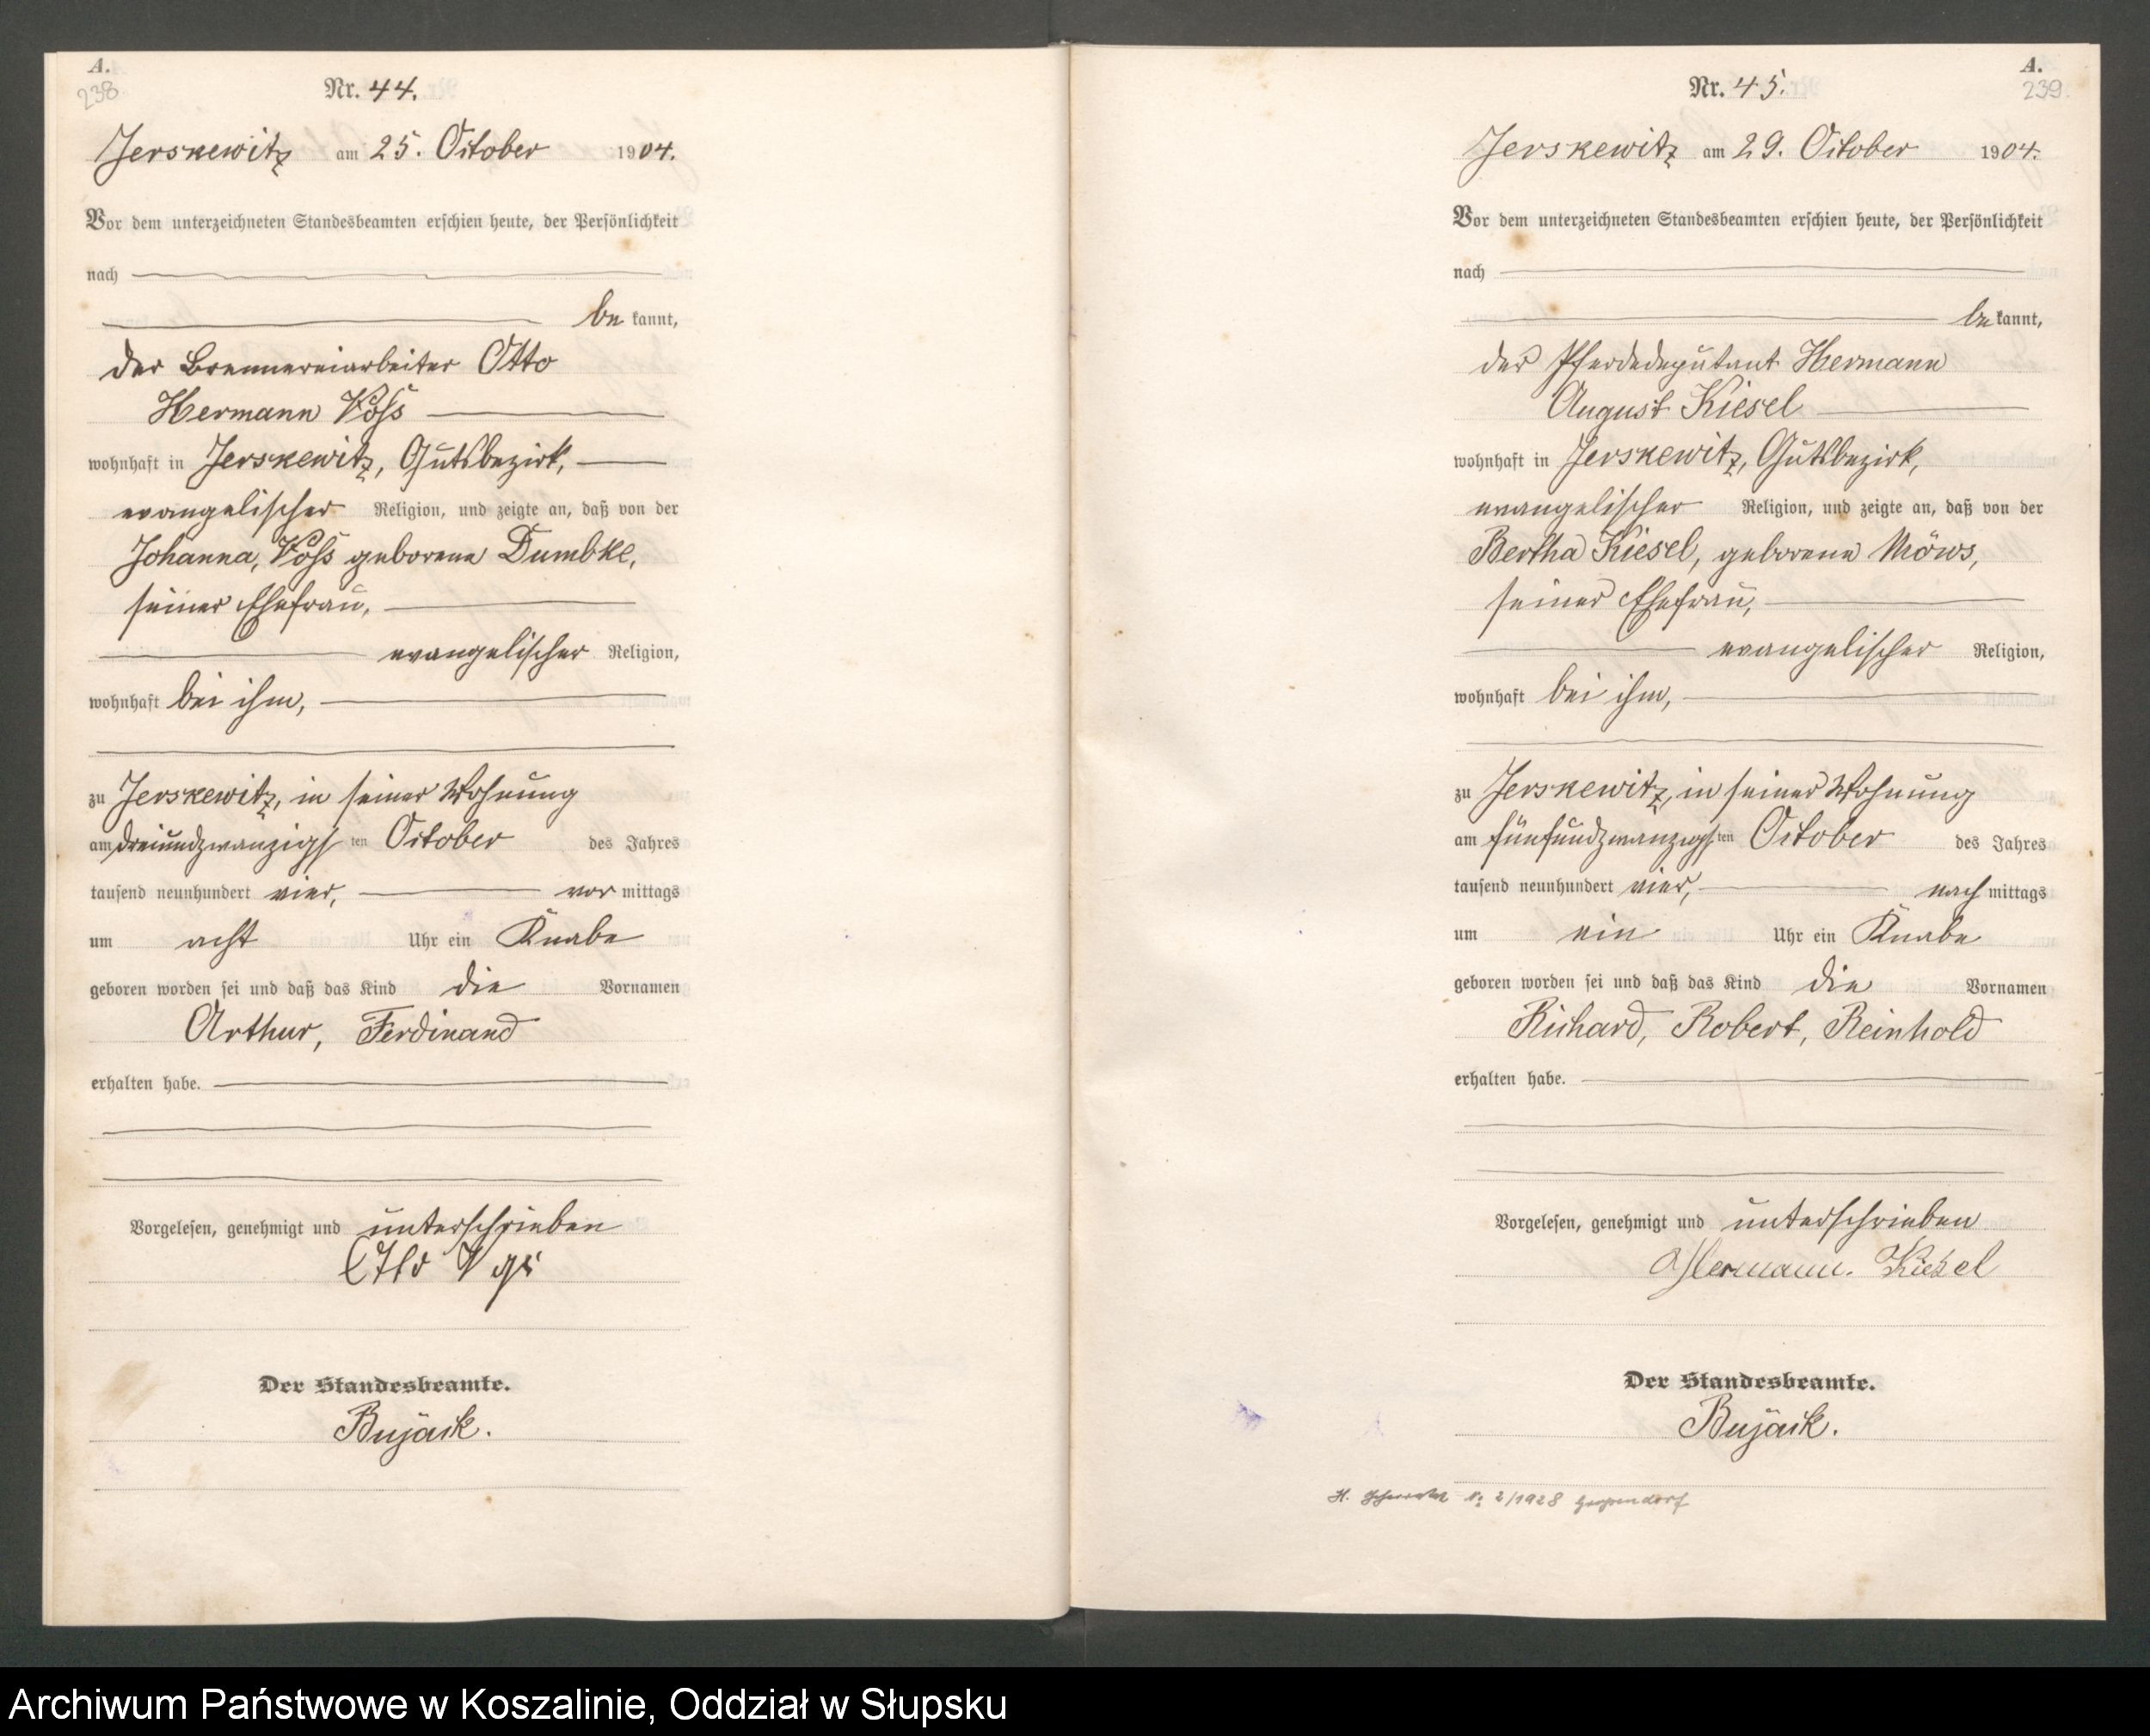 A.
238
Nr. 44.
Jerskewitz am 25. October 1904.
Vor dem unterzeichneten Standesbeamten erschien heute, der Persönlichkeit
nach
be kannt,
der Brennereiarbeiter Otto
Hermann Voß
wohnhaft in Jerskewitz, Gutsbezirk,
evangelischer Religion, und zeigte an, daß von der
Johanna, Voß geborene Dumbke,
seiner Ehefrau,
evangelischer Religion,
wohnhaft bei ihm,
zu Jerskewitz, in seiner Wohnung
am dreiundzwanzigsten October des Jahres
tausend neunhundert vier, vor mittags
um acht Uhr ein Knabe
geboren worden sei und daß das Kind die Vornamen
Arthur, Ferdinand
erhalten habe.
Vorgelesen, genehmigt und unterschrieben
Otto
Der Standesbeamte.
Bujack.
A.
239.
Nr. 45.
Jerskewitz am 29. October 1904.
Vor dem unterzeichneten Standesbeamten erschien heute, der Persönlichkeit
nach
be kannt,
der Pferdedeputant Hermann
August Kiesel
wohnhaft in Jerskewitz, Gutsbezirk,
evangelischer Religion, und zeigte an, daß von der
Bertha Kiesel, geborene Möws,
seiner Ehefrau,
evangelischer Religion,
wohnhaft bei ihm,
zu Jerskewitz, in seiner Wohnung
am fünfundzwanzigsten October des Jahres
tausend neunhundert vier, nach mittags
um ein Uhr ein Knabe
geboren worden sei und daß das Kind die Vornamen
Richard, Robert, Reinhold
erhalten habe.
Vorgelesen, genehmigt und unterschrieben
Hermann. Kiesel
Der Standesbeamte.
Bujack.
H. No 2/1928
Archiwum Państwowe w Koszalinie, Oddział w Słupsku